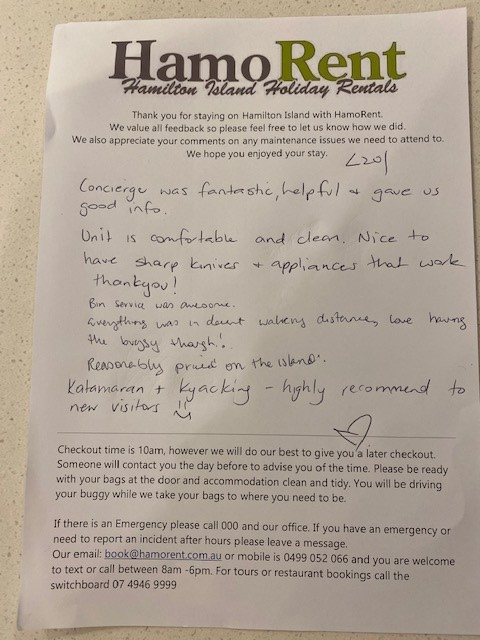 HamoRent
Hamilton Island Holiday Rentals
Thank you for staying on Hamilton Island with HamoRent.
We value all feedback so please feel free to let us know how we did.
We also appreciate your comments on any maintenance issues we need to attend to.
We hope you enjoyed your stay.
L201
Concierge was fantastic, helpful + gave us
good info.
Unit is comfortable and clean. Nice to
have sharp knives + appliances that work
thankyou!
Bin service was awesome.
Everything was in decent walking distance, love having
the buggy though!.
Reasonably priced on the island.
Katamaran + Kyacking - highly recommend to
new visitors
Checkout time is 10am, however we will do our best to give you a later checkout.
Someone will contact you the day before to advise you of the time. Please be ready
with your bags at the door and accommodation clean and tidy. You will be driving
your buggy while we take your bags to where you need to be.
If there is an Emergency please call 000 and our office. If you have an emergency or
need to report an incident after hours please leave a message.
Our email: book@hamorent.com.au or mobile is 0499 052 066 and you are welcome
to text or call between 8am -6pm. For tours or restaurant bookings call the
switchboard 07 4946 9999